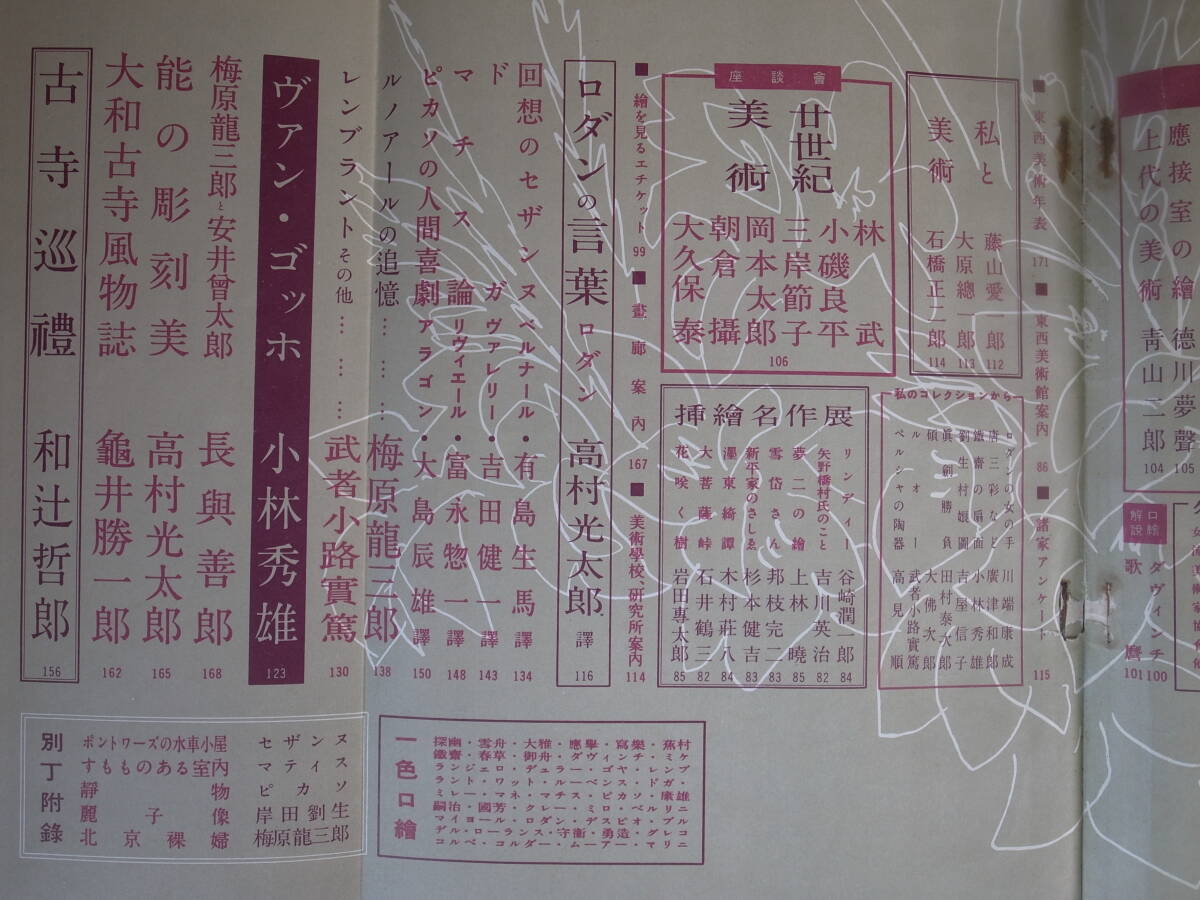 應接室の繪 德川夢聲 105
上代の美術 靑山二郎 104
口絵解説
ダヴィンチ 100
歌麿 101
■ 東西美術年表 171 ■ 東西美術館案内 86 ■ 諸家アンケート 115
私と美術
藤山愛一郎 112
大原總一郎 113
石橋正二郎 114
私のコレクションから
ロダンの女の手 川端康成
唐三彩など 廣津和郎
鐵齋の扇面 小林秀雄
劉生村娘圖 吉屋信子
眞創勝負 田村泰次郎
碩 大佛次郎
ルオー 武者小路實篤
ペルシャの陶器 高見順
座談會
廿世紀美術
林武
小磯良平
三岸節子
岡本太郎
朝倉攝
大久保泰
106
挿繪名作展
リンディー 谷崎潤一郎 84
矢野橋村氏のこと 吉川英治 82
夢二の繪 上林曉 85
雪岱さん 邦枝完二 83
新平家のさしゑ 杉本健吉 83
濹東綺譚 木村莊八 84
大菩薩峠 石井鶴三 82
花咲く樹 岩田專太郎 85
■ 繪を見るエチケット 99 ■ 畫廊案内 167 ■ 美術學校、研究所案内 114
ロダンの言葉 ロダン 高村光太郎 譯 116
回想のセザンヌ ベルナール・有島生馬 譯 134
ドガ ヴァレリー・吉田健一 譯 143
マチス論 リヴィエール・富永惣一 譯 148
ピカソの人間喜劇 アラゴン・大島辰雄 譯 150
ルノアールの追憶……… 梅原龍三郎 138
レンブラントその他……… 武者小路實篤 130
ヴァン・ゴッホ 小林秀雄 123
梅原龍三郎と安井曾太郎 長與善郎 168
能の彫刻美 高村光太郎 165
大和古寺風物誌 龜井勝一郎 162
古寺巡禮 和辻哲郎 156
一色口繪
探幽・雪舟・大雅・應擧・寫樂・蕪村
鐵齋・春草・御舟・ダヴィンチ・ミケ
ランジェロ・デュラー・ゴヤ・レンブ
ラント・ワット・ルーベンス・ドガ・
ミレー・マネ・マチス・ピカソ・康雄
嗣治・國芳・クレー・ミロ・ベルリニ
マイヨール・ロダン・デスピオ・ブル
デル・ローランス・守衞・勇造・グレコ
コルベ・コルダー・ムーアー・マリニ
別丁附錄
ポントワーズの水車小屋 セザンヌ
すもものある室内 マティス
靜物 ピカソ
麗子像 岸田劉生
北京裸婦 梅原龍三郎